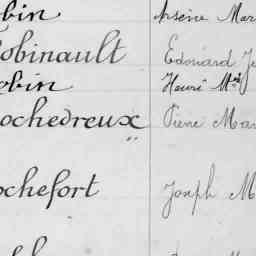 obin Arsène Mar
obinault Edouard Je
obin Henri M
ochedreux Pierre Mar
ochefort Joseph M